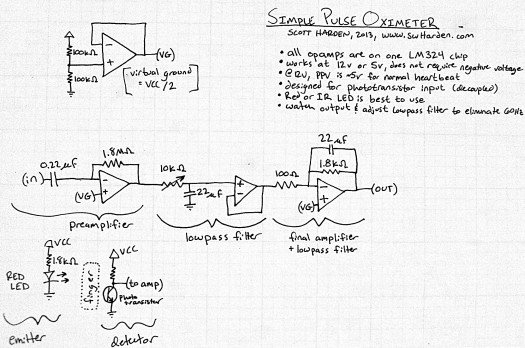 SIMPLE PULSE OXIMETER
SCOTT HARDEN, 2013, www.SWHarden.com
• all opamps are on one LM324 chip
• works at 12v or 5v, does not require negative voltage
• @12V, PPV is ~5v for normal heartbeat
• designed for phototransistor input (decoupled)
• Red or IR LED is best to use
• watch output & adjust lowpass filter to eliminate 60Hz
100kΩ
100kΩ
(VG)
virtual ground
= VCC/2
0.22µF
(in)
1.8MΩ
(VG)
10kΩ
22µF
100Ω
22µF
1.8kΩ
(VG)
(OUT)
preamplifier
lowpass filter
final amplifier
+ lowpass filter
VCC
1.8kΩ
RED
LED
finger
VCC
(to amp)
Photo
transistor
emitter
detector